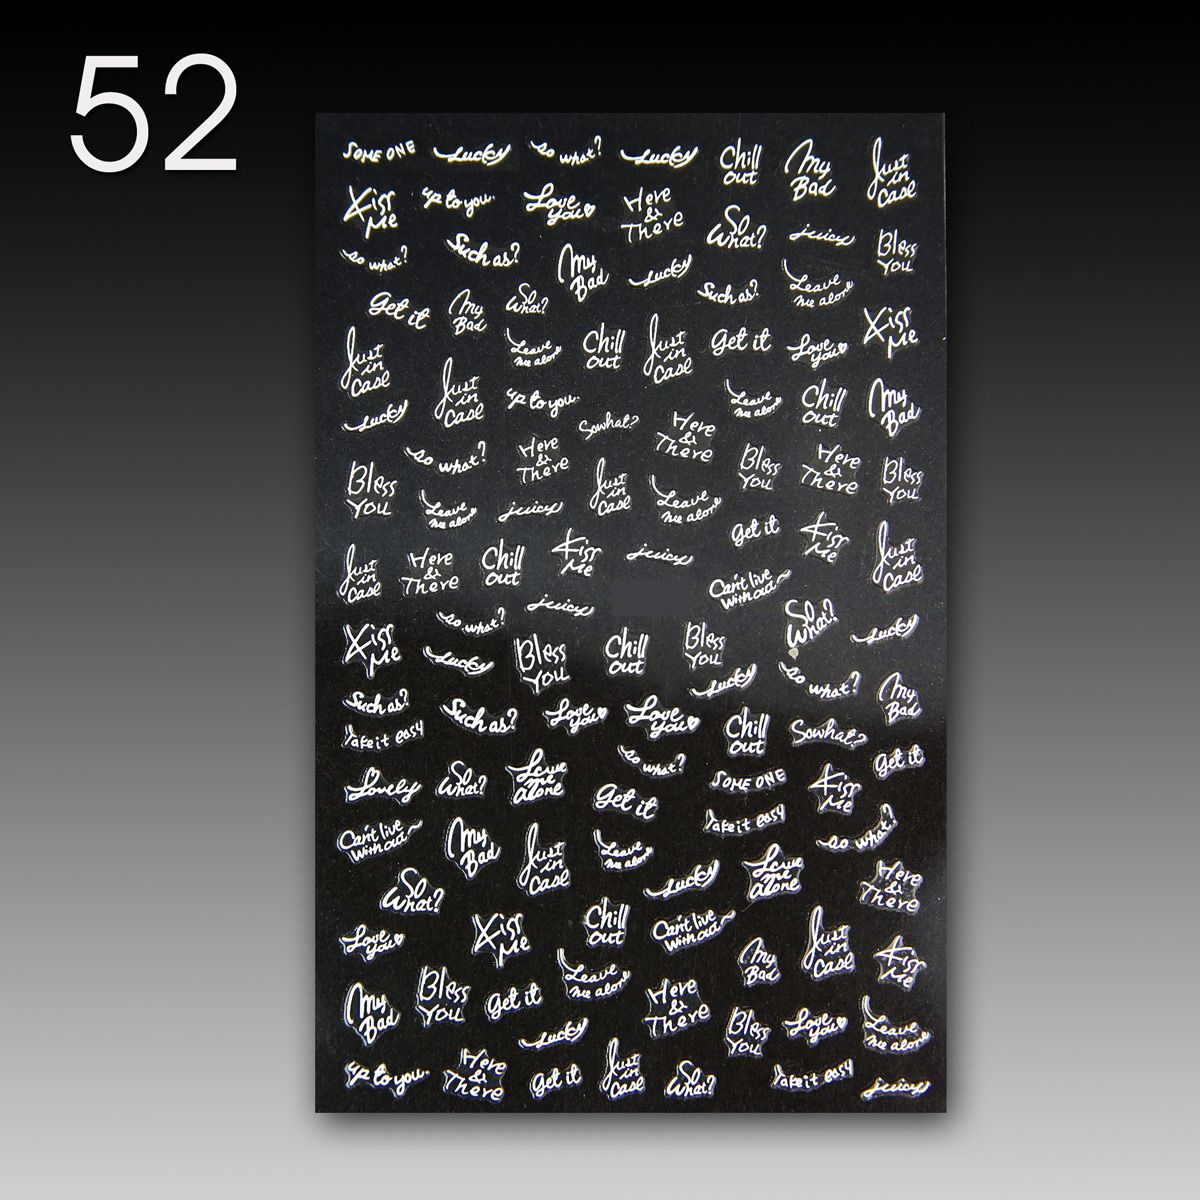 52
SOME ONE
Lucky
so what?
Lucky
Chill
out
My
Bad
Just
in
Case
Kiss
Me
up to you.
Love
you
Here
&
There
So
What?
juicy
Bless
You
so what?
Such as?
My
Bad
Lucky
Such as?
Leave
me alone
Get it
My
Bad
So
What?
Kiss
Me
Just
in
Case
Leave
me alone
Chill
out
Just
in
Case
Get it
Love
you
Lucky
Just
in
Case
up to you.
Leave
me alone
Chill
out
My
Bad
Sowhat?
Here
&
There
so what?
Here
&
There
Bless
You
Here
&
There
Bless
You
Bless
You
Leave
me alone
juicy
Just
in
Case
Leave
me alone
Get it
Kiss
Me
Just
in
Case
Just
in
Case
Here
&
There
Chill
out
Kiss
Me
juicy
Can't live
Without
so what?
juicy
So
What?
Lucky
Kiss
Me
Lucky
Bless
You
Chill
out
Bless
You
Lucky
so what?
My
Bad
Such as?
Such as?
Love
you
Love
you
Chill
out
Sowhat?
Take it easy
so what?
Get it
Lovely
So
What?
Leave
me
alone
Get it
SOME ONE
Kiss
Me
Take it easy
so what?
Can't live
Without
My
Bad
Just
in
Case
Leave
me alone
Lucky
Leave
me
alone
Here
&
There
So
What?
Love
you
Kiss
Me
Chill
out
Can't live
Without
My
Bad
Just
in
Case
Kiss
Me
My
Bad
Bless
You
Get it
Leave
me alone
Here
&
There
Bless
You
Love
you
Leave
me alone
Lucky
up to you.
Here
&
There
Get it
Just
in
Case
So
What?
Take it easy
juicy